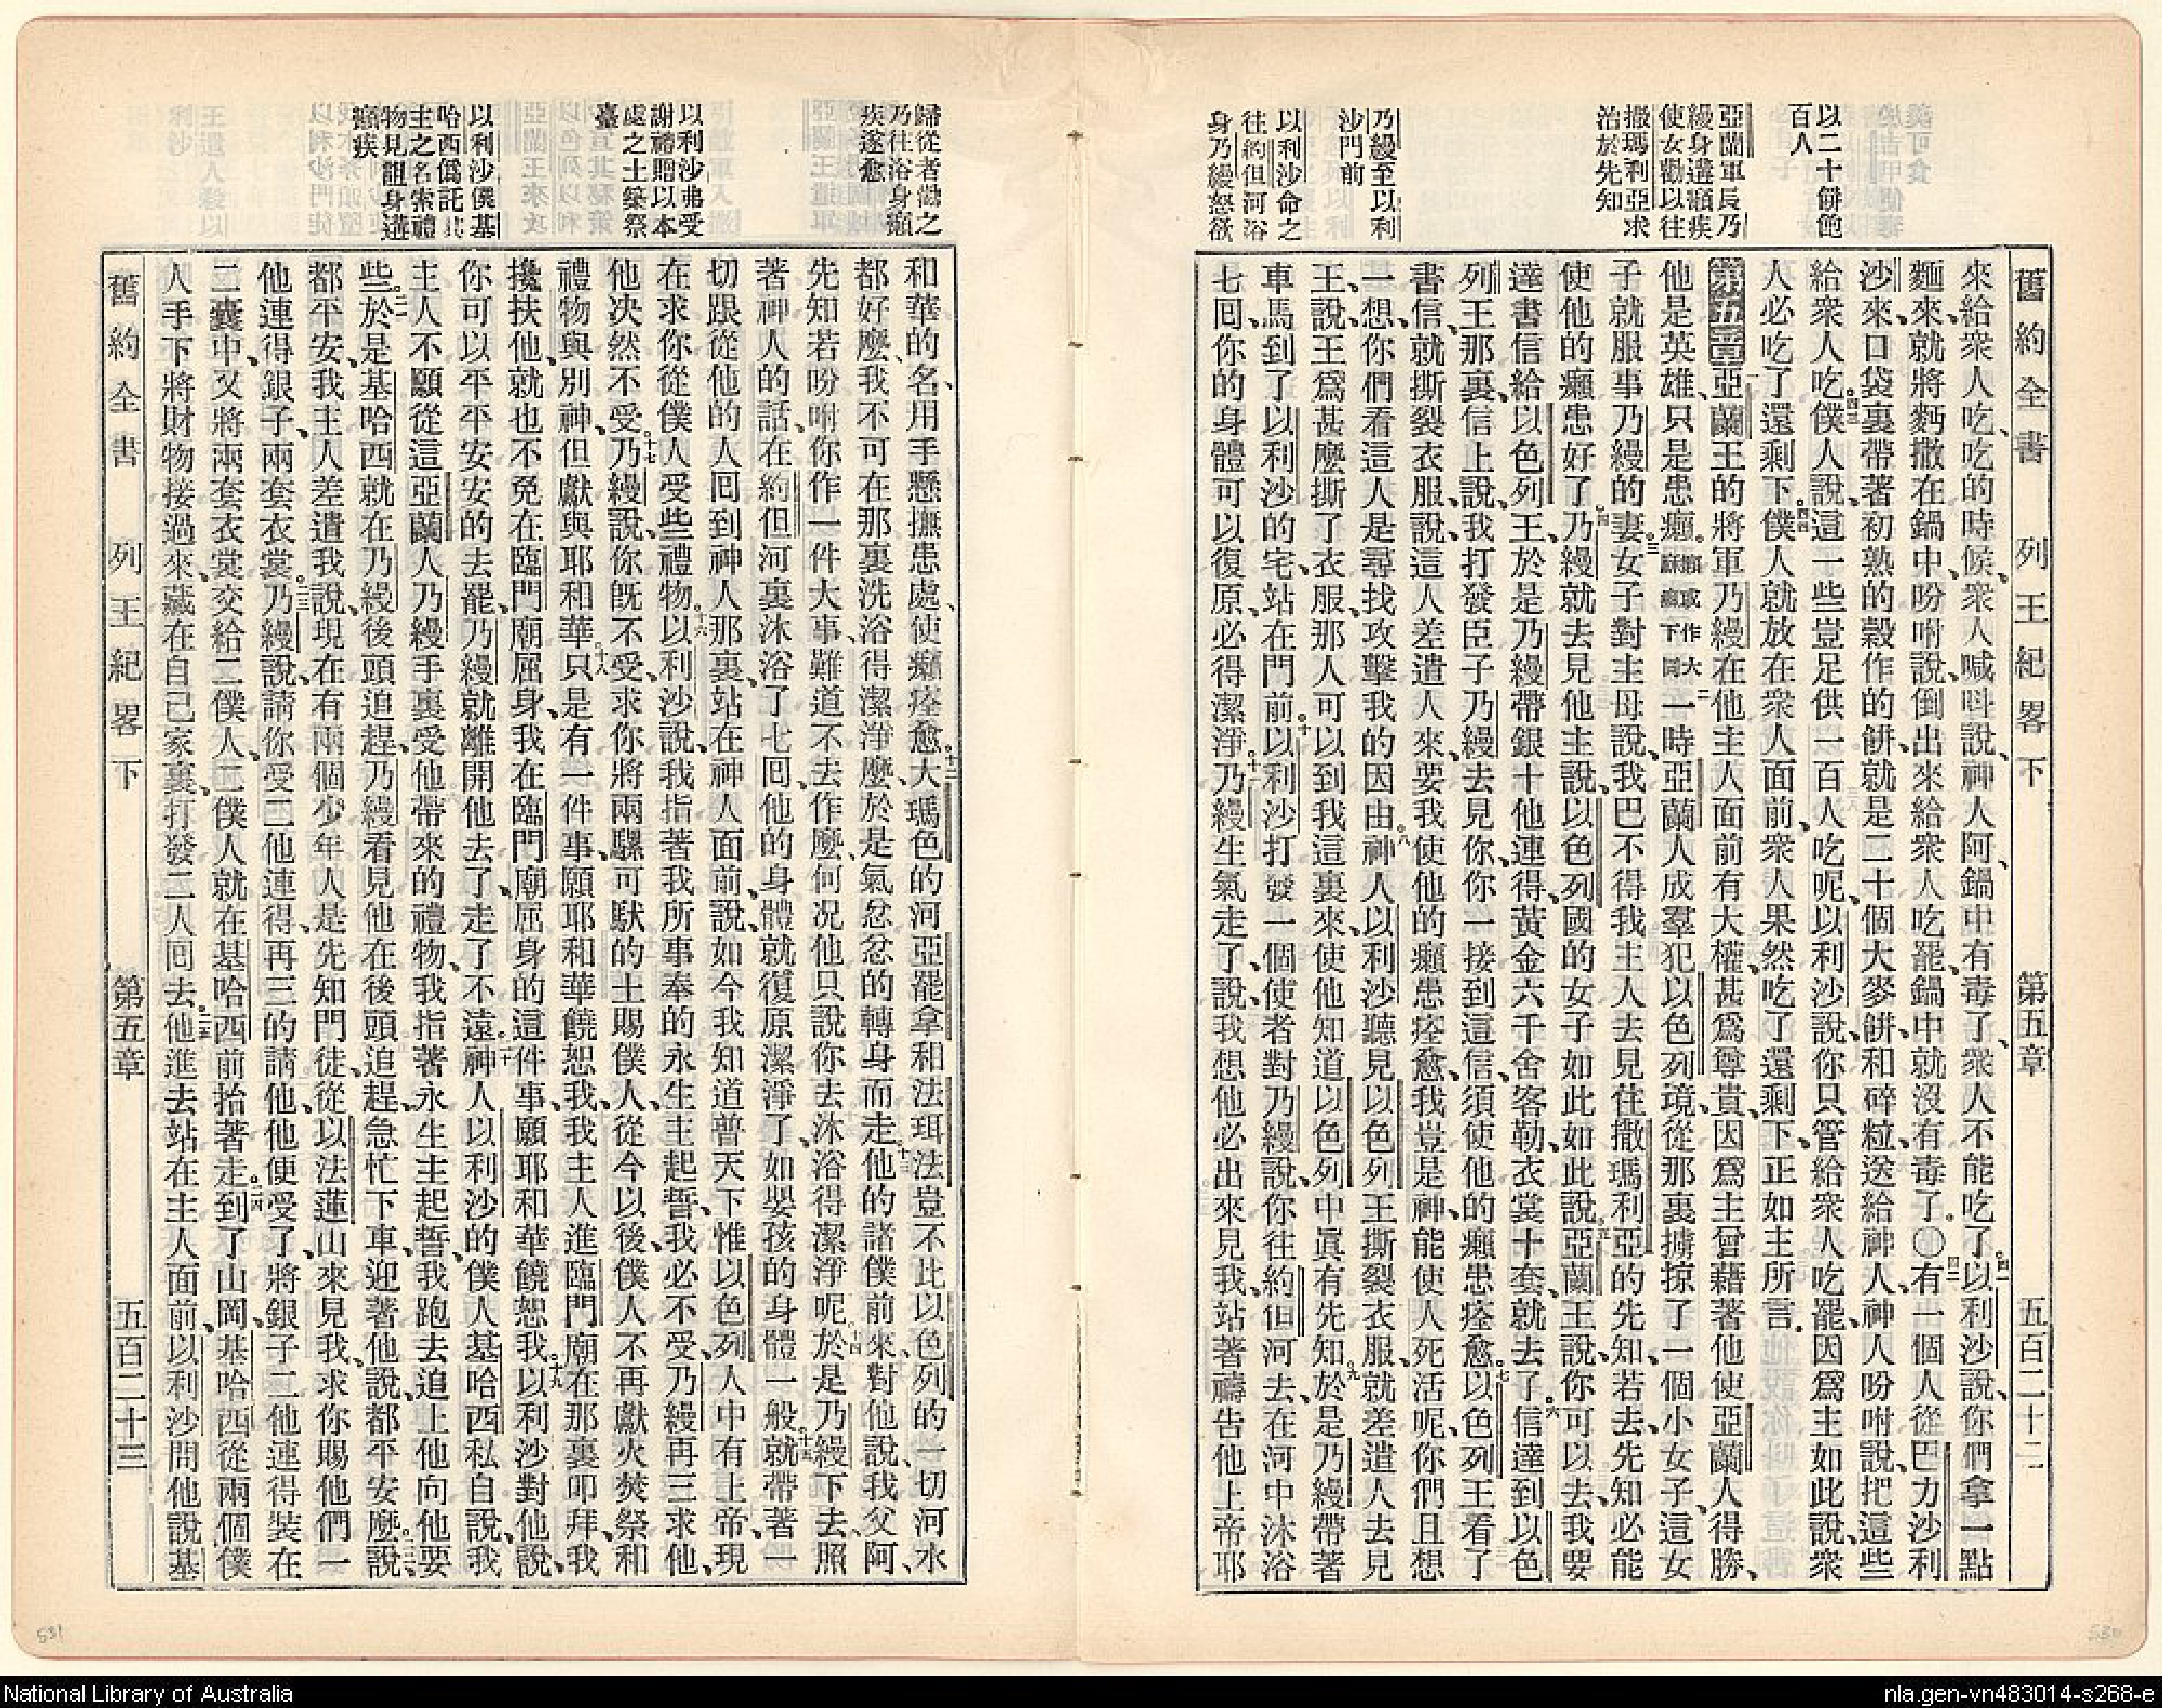 舊約全書 列王紀畧下 第五章 五百二十二
以二十餅飽
百人
亞蘭軍長乃
縵身遘癩疾
使女勸以往
撒瑪利亞求
治於先知
乃縵至以利
沙門前
以利沙命之
往約但河浴
身乃縵怒欲
來給衆人吃、吃的時候、衆人喊叫說、神人阿、鍋中有毒了、衆人不能吃了。四一以利沙說、你們拿一點
麵來、就將麪撒在鍋中、吩咐說、倒出來給衆人吃罷、鍋中就沒有毒了。〇四二有一個人從巴力沙利
沙來、口袋裏帶著初熟的穀作的餅、就是二十個大麥餅、和碎粒、送給神人、神人吩咐說、把這些
給衆人吃。四三僕人說、這一些豈足供一百人吃呢、以利沙說、你只管給衆人吃罷、因爲主如此說、衆
人必吃了、還剩下。四四僕人就放在衆人面前、衆人果然吃了、還剩下、正如主所言。
第五章 一亞蘭王的將軍乃縵、在他主人面前有大權、甚爲尊貴、因爲主曾藉著他使亞蘭人得勝、
他是英雄、只是患癩。癩或作大痲瘋下同二一時亞蘭人成羣犯以色列境、從那裏擄掠了一個小女子、這女
子就服事乃縵的妻。三女子對主母說、我巴不得我主人去見住撒瑪利亞的先知、若去、先知必能
使他的癩患好了。四乃縵就去見他主說、以色列國的女子如此如此說。五亞蘭王說、你可以去、我要
達書信給以色列王、於是乃縵帶銀十他連得、黃金六千舍客勒、衣裳十套、就去了。六信達到以色
列王那裏、信上說、我打發臣子乃縵去見你、你一接到這信、須使他的癩患痊愈。七以色列王看了
書信、就撕裂衣服、說、這人差遣人來、要我使他的癩患痊愈、我豈是神、能使人死活呢、你們且想
一想、你們看這人是尋找攻擊我的因由。八神人以利沙聽見以色列王撕裂衣服、就差遣人去見
王、說、王爲甚麽撕了衣服、那人可以到我這裏來、使他知道以色列中眞有先知。九於是乃縵帶著
車馬、到了以利沙的宅、站在門前。十以利沙打發一個使者對乃縵說、你往約但河去、在河中沐浴
七回、你的身體可以復原、必得潔淨。十一乃縵生氣走了、說、我想他必出來見我、站著禱告他上帝耶
歸從者勸之
乃往浴身癩
疾遂愈
以利沙弗受
謝禮贈以本
處之土築祭
臺
以利沙僕基
哈西僞託其
主之名索禮
物見詛身遘
癩疾
和華的名、用手懸撫患處、使癩痊愈。十二大瑪色的河亞罷拿和法珥法豈不比以色列的一切河水
都好麽、我不可在那裏洗浴得潔淨麽、於是氣忿忿的轉身而走。十三他的諸僕前來、對他說、我父阿、
先知若吩咐你作一件大事、難道不去作麽、何况他只說你去沐浴得潔淨呢。十四於是乃縵下去、照
著神人的話、在約但河裏沐浴了七回、他的身體就復原潔淨了、如嬰孩的身體一般。十五就帶著一
切跟從他的人回到神人那裏、站在神人面前、說、如今我知道普天下惟以色列人中有上帝、現
在求你從僕人受些禮物。十六以利沙說、我指著我所事奉的永生主起誓、我必不受、乃縵再三求他、
他决然不受。十七乃縵說、你旣不受、求你將兩騾可馱的土賜僕人、從今以後、僕人不再獻火焚祭和
禮物與別神、但獻與耶和華。十八只是有一件事、願耶和華饒恕我、我主人進臨門廟在那裏叩拜、我
攙扶他、就也不免在臨門廟屈身、我在臨門廟屈身的這件事、願耶和華饒恕我。十九以利沙對他說、
你可以平平安安的去罷、乃縵就離開他去了、走了不遠。二十神人以利沙的僕人基哈西私自說、我
主人不願從這亞蘭人乃縵手裏受他帶來的禮物、我指著永生主起誓、我跑去追上他、向他要
些。二一於是基哈西就在乃縵後頭追趕、乃縵看見他在後頭追趕、急忙下車、迎著他說、都平安麽。二二說、
都平安、我主人差遣我說、現在有兩個少年人、是先知門徒、從以法蓮山來見我、求你賜他們一
他連得銀子、兩套衣裳。二三乃縵說、請你受二他連得、再三的請他、他便受了、將銀子二他連得裝在
二囊中、又將兩套衣裳交給二僕人、二僕人就在基哈西前抬著走。二四到了山岡、基哈西從兩個僕
人手下將財物接過來、藏在自己家裏、打發二人回去。二五他進去、站在主人面前、以利沙問他說、基
舊約全書 列王紀畧下 第五章 五百二十三
531
530
National Library of Australia
nla.gen-vn483014-s268-e